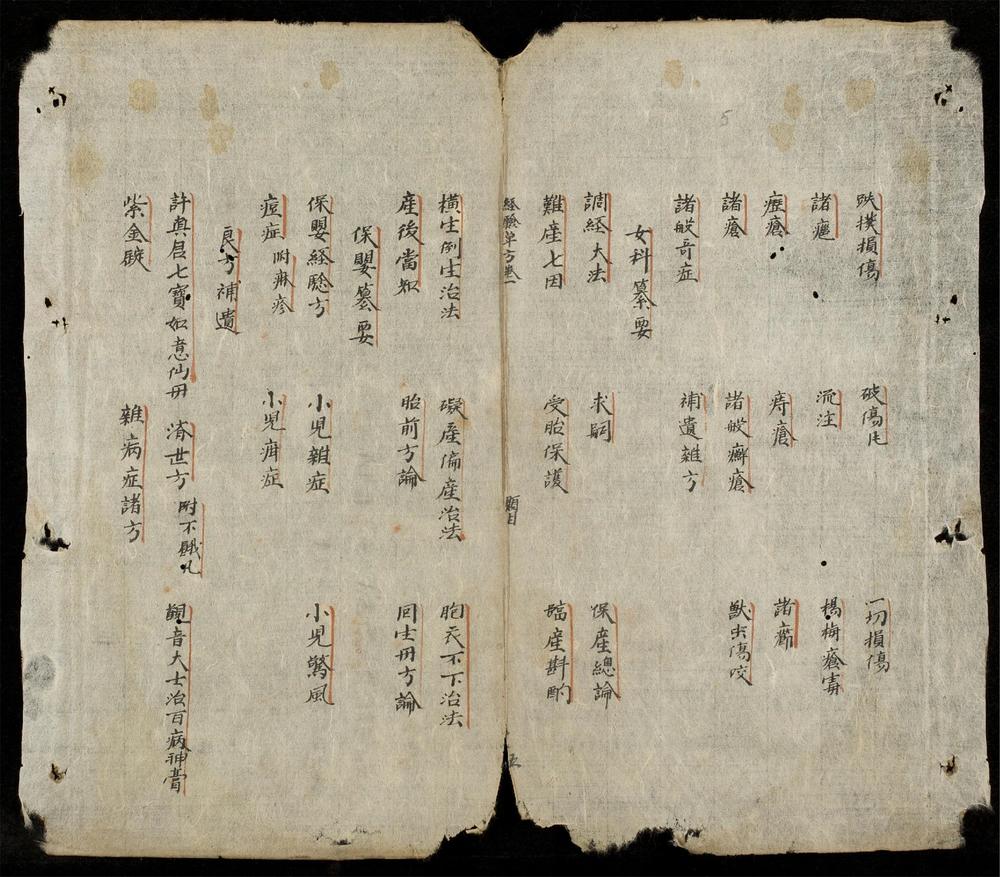 跌撲損傷　破傷㞎　一切損傷
諸瘢　流注　楊梅瘡毒
瘂瘡　痔瘡　諸癤
諸瘡　諸般癬瘡　獸虫傷咬
諸般奇症　補遺雜方
女科纂要
調經大法　求嗣　保産總論
難産七因　受胎保護　臨産斟酌
経驗单方卷一　題目　五
橫生例生治法　礙産偏産治法　胞衣不下治法
産後當知　胎前方論　回生丹方論
保嬰纂要
保嬰経驗方　小兒雜症　小兒驚風
痘症　附麻疹　小兒疳症
良方補遺
許真君七寶如意仙丹　济世方　附不饑丸　觀音大士治百病神膏
紫金錠　雜病症諸方
5